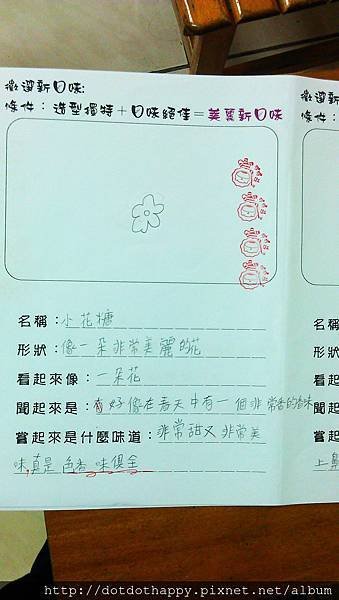 徵選新口味:
條件：造型獨特＋口味絕佳＝美質新口味
名稱：小花糖
形狀：像一朵非常美麗的花
看起來像：一朵花
聞起來是：好像在春天中有一個非常香的香味
嘗起來是什麼味道：非常甜又非常美
味,真是色香味俱全
徵
條件：
名稱
形狀
看起
聞起
嘗起
上鼻
http://dotdothappy.pixnet.net/album